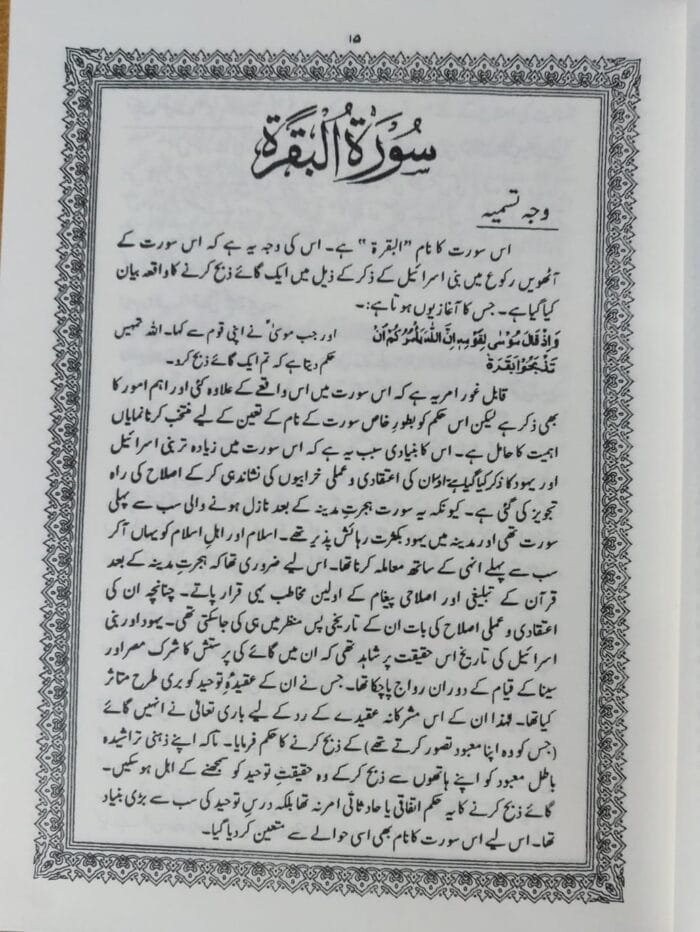 ۱۵
سُوْرَةُ الْبَقَرَةِ
وجہ تسمیہ
اس سورت کا نام ”البقرۃ“ ہے۔ اس کی وجہ یہ ہے کہ اس سورت کے
آٹھویں رکوع میں بنی اسرائیل کے ذکر کے ذیل میں ایک گائے ذبح کرنے کا واقعہ بیان
کیا گیا ہے۔ جس کا آغاز یوں ہوتا ہے:۔
وَاِذْ قَالَ مُوْسٰى لِقَوْمِهٖٓ اِنَّ اللّٰهَ يَاْمُرُكُمْ اَنْ اور جب موسیٰؑ نے اپنی قوم سے کہا۔ اللہ تمہیں
تَذْبَحُوْا بَقَرَةً حکم دیتا ہے کہ تم ایک گائے ذبح کرو۔
قابل غور امر یہ ہے کہ اس سورت میں اس واقعے کے علاوہ کئی اور اہم امور کا
بھی ذکر ہے لیکن اس حکم کو بطورِ خاص سورت کے نام کے تعین کے لیے منتخب کرنا نمایاں
اہمیت کا حامل ہے۔ اس کا بنیادی سبب یہ ہے کہ اس سورت میں زیادہ تر بنی اسرائیل
اور یہود کا ذکر کیا گیا ہے اور ان کی اعتقادی و عملی خرابیوں کی نشاندہی کر کے اصلاح کی راہ
تجویز کی گئی ہے۔ کیونکہ یہ سورت ہجرتِ مدینہ کے بعد نازل ہونے والی سب سے پہلی
سورت تھی اور مدینہ میں یہود بکثرت رہائش پذیر تھے۔ اسلام اور اہلِ اسلام کو یہاں آ کر
سب سے پہلے انہی کے ساتھ معاملہ کرنا تھا۔ اس لیے ضروری تھا کہ ہجرتِ مدینہ کے بعد
قرآن کے تبلیغی اور اصلاحی پیغام کے اولین مخاطب یہی قرار پاتے۔ چنانچہ ان کی
اعتقادی و عملی اصلاح کی بات ان کے تاریخی پس منظر میں ہی کی جا سکتی تھی۔ یہود اور بنی
اسرائیل کی تاریخ اس حقیقت پر شاہد تھی کہ ان میں گائے کی پرستش کا شرک مصر اور
سینا کے قیام کے دوران رواج پا چکا تھا۔ جس نے ان کے عقیدۂ توحید کو بری طرح متاثر
کیا تھا۔ لہٰذا ان کے اس مشرکانہ عقیدے کے رد کے لیے باری تعالیٰ نے انہیں گائے
(جس کو وہ اپنا معبود تصور کرتے تھے) کے ذبح کرنے کا حکم فرمایا۔ تاکہ اپنے ذہنی تراشیدہ
باطل معبود کو اپنے ہاتھوں سے ذبح کر کے وہ حقیقتِ توحید کو سمجھنے کے اہل ہو سکیں۔
گائے ذبح کرنے کا یہ حکم اتفاقی یا حادثاتی امر نہ تھا بلکہ درسِ توحید کی سب سے بڑی بنیاد
تھا۔ اس لیے اس سورت کا نام بھی اسی حوالے سے متعین کر دیا گیا۔